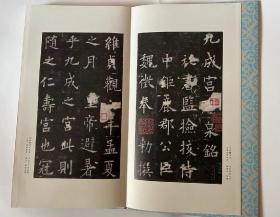 九成宮泉銘
書監檢校侍
中鉅鹿郡公臣
魏徵奉 勅撰
維貞觀 年孟夏
之月 帝避暑
乎九成之宮此則
隨之仁壽宮也冠